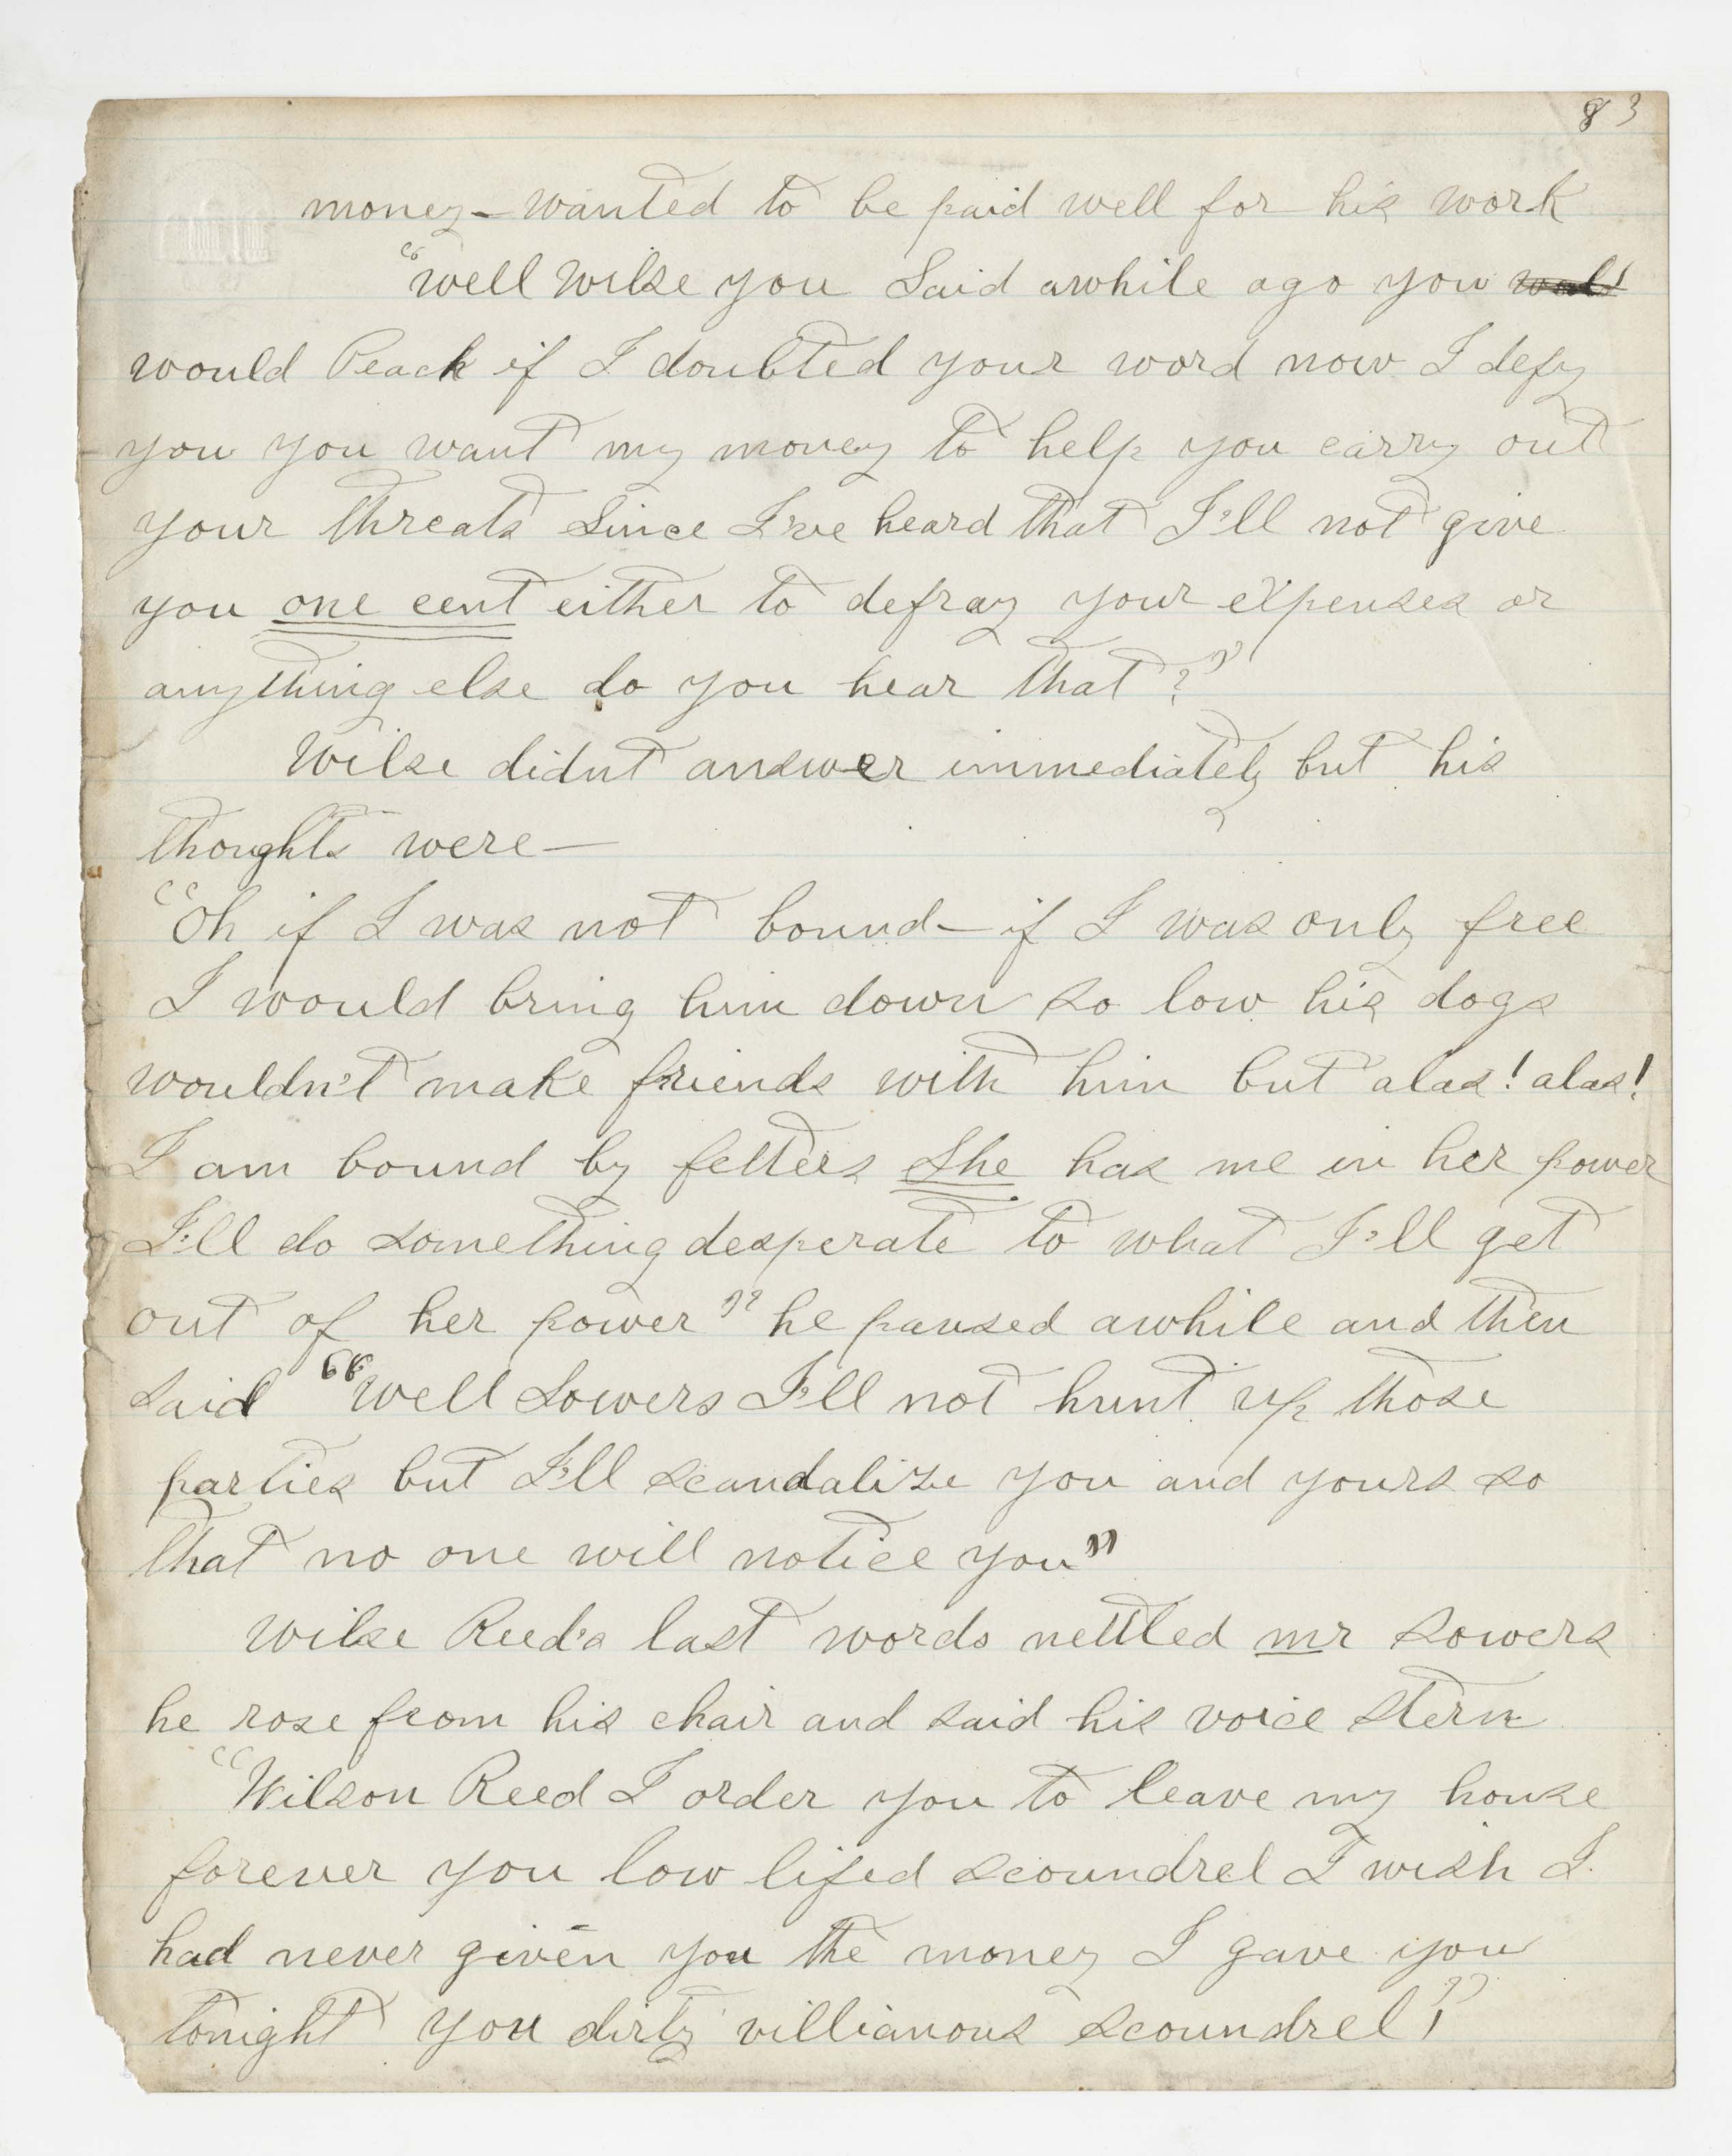 83
money - wanted to be paid well for his work
"well Wilse you Said awhile ago you
would Peach if I doubted your word now I defy
you you want my money to help you carry out
your threats Since I've heard that I'll not give
you one cent either to defray your expenses or
anything else do you hear that?"
Wilse didnt answer immediately but his
thoughts were —
"Oh if I was not bound - if I was only free
I would bring him down so low his dogs
wouldn't make friends with him but alas! alas!
I am bound by fetters She has me in her power
I'll do something desperate to what I'll get
out of her power" he paused awhile and then
said "well Sowers I'll not hunt up those
parties but I'll scandalize you and yours so
that no one will notice you"
Wilse Reed's last words nettled mr Sowers
he rose from his chair and said his voice stern
"Wilson Reed I order you to leave my house
forever you low lifed scoundrel I wish I
had never given you the money I gave you
tonight you dirty villianous scoundrel!"